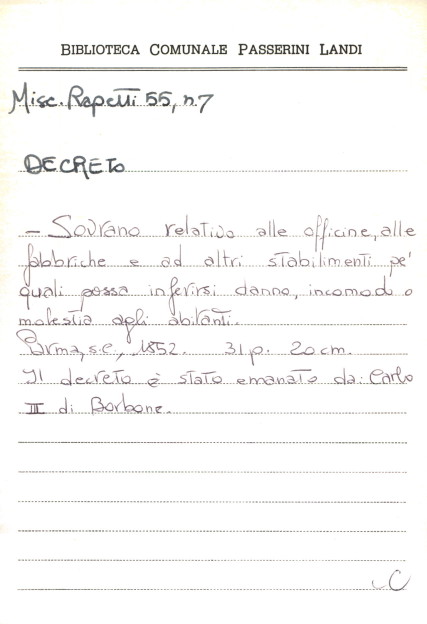 BIBLIOTECA COMUNALE PASSERINI LANDI
Misc. Rapetti 55, n.7
DECRETO
- Sovrano relativo alle officine, alle
fabbriche e ad altri stabilimenti pe'
quali possa inferirsi danno, incomodo o
molestia agli abitanti.
Parma, s.e., 1852. 31 p. 20 cm.
Il decreto è stato emanato da: Carlo
III di Borbone.